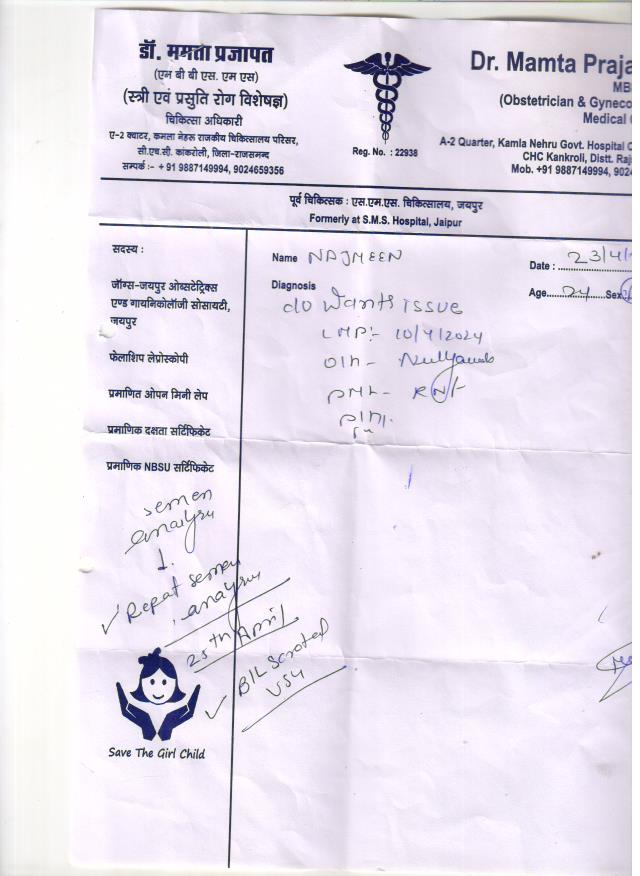 डॉ. ममता प्रजापत
(एम बी बी एस. एम एस)
(स्त्री एवं प्रसुति रोग विशेषज्ञ)
चिकित्सा अधिकारी
ए-2 क्वाटर, कमला नेहरू राजकीय चिकित्सालय परिसर,
सी.एच.सी. कांकरोली, जिला-राजसमन्द
सम्पर्क :- + 91 9887149994, 9024659356
Reg. No. : 22938
Dr. Mamta Praja
MB
(Obstetrician & Gyneco
Medical
A-2 Quarter, Kamla Nehru Govt. Hospital C
CHC Kankroli, Distt. Raj
Mob. +91 9887149994, 9024
पूर्व चिकित्सक : एस.एम.एस. चिकित्सालय, जयपुर
Formerly at S.M.S. Hospital, Jaipur
सदस्य :
जॉग्स-जयपुर ओब्सटेट्रिक्स
एण्ड गायनिकोलॉजी सोसायटी,
जयपुर
फेलाशिप लेप्रोस्कोपी
प्रमाणित ओपन मिनी लेप
प्रमाणिक दक्षता सर्टिफिकेट
प्रमाणिक NBSU सर्टिफिकेट
Name NAJMEEN
Date : 23/4/
Diagnosis
Age 24 Sex
Wants issue
LMP:- 10/4/2024
O/H-
semen
analysis
Repat semen
analysis
25th April
B/L Scrotal
USG
Save The Girl Child